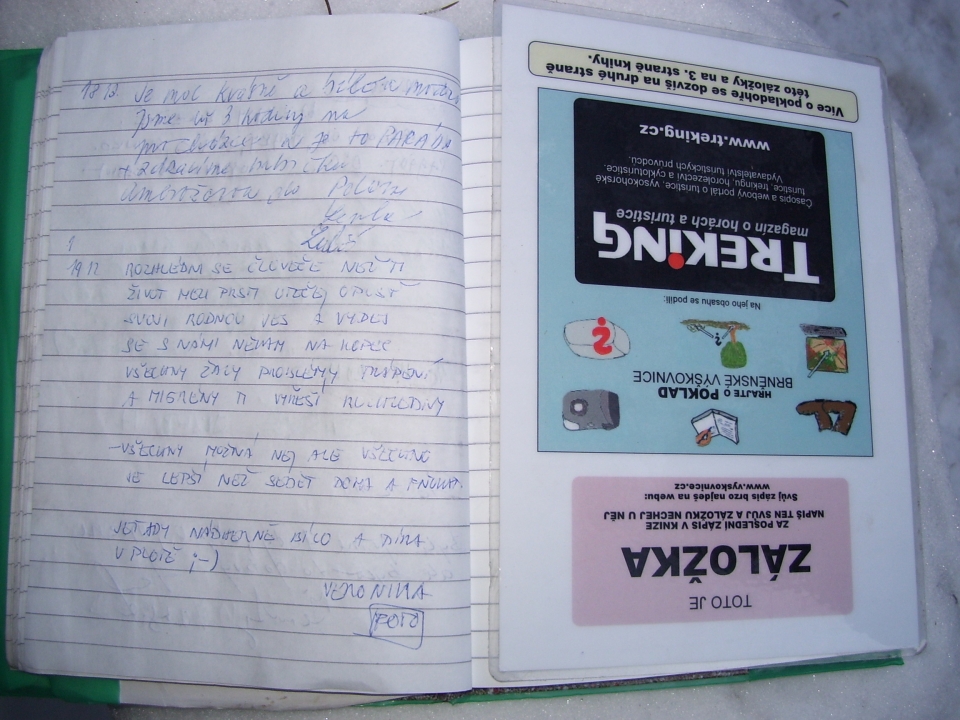 18.12 Je moc krásně a
jsme už 3 hodiny na
a je to PARÁDA
19.12 ROZHLÉDNI SE ČLOVĚČE NEŽ TI
ŽIVOT MEZI PRSTI UTEČE, OPUSŤ
SVOJI RODNOU VES A VYDEJ
SE S NÁMI NĚKAM NA KOPEC
VŠECHNY ŽALY PROBLÉMY TRÁPENÍ
A MIGRÉNY TI VYŘEŠÍ ROZHLEDNY
- VŠECHNY MOŽNÁ NE, ALE VŠECHNO
JE LEPŠÍ NEŽ SEDĚT DOMA A
JE TADY NÁDHERNĚ BÍLO A DÍRA
V PLOTĚ ;-)
VERONIKA
FOTO
TOTO JE
ZÁLOŽKA
ZA POSLEDNÍ ZÁPIS V KNIZE
NAPIŠ TEN SVŮJ A ZÁLOŽKU NECHEJ U NĚJ
Svůj zápis brzo najdeš na webu:
www.vyskovnice.cz
HRAJTE O POKLAD
BRNĚNSKÉ VÝŠKOVNICE
Na jeho obsahu se podílí:
TREKING
magazín o horách a turistice
Časopis a webový portál o turistice, vysokohorské
turistice, trekingu, horolezectví a cykloturistice.
Vydavatelství turistických průvodců.
www.treking.cz
Více o pokladohře se dozvíš na druhé straně
této záložky a na 3. straně knihy.